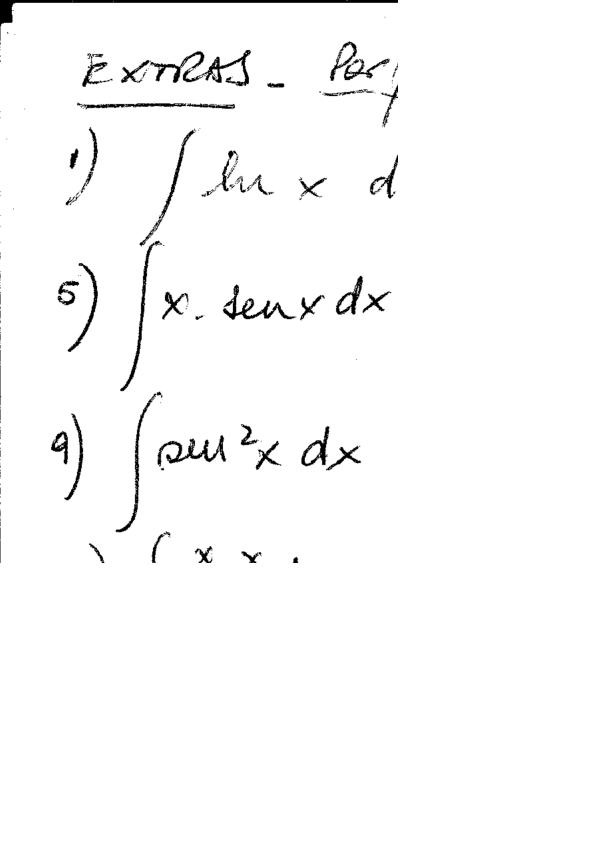 EXTRAS - Par
1) ∫ ln x d
5) ∫ x. sen x dx
9) ∫ sen²x dx